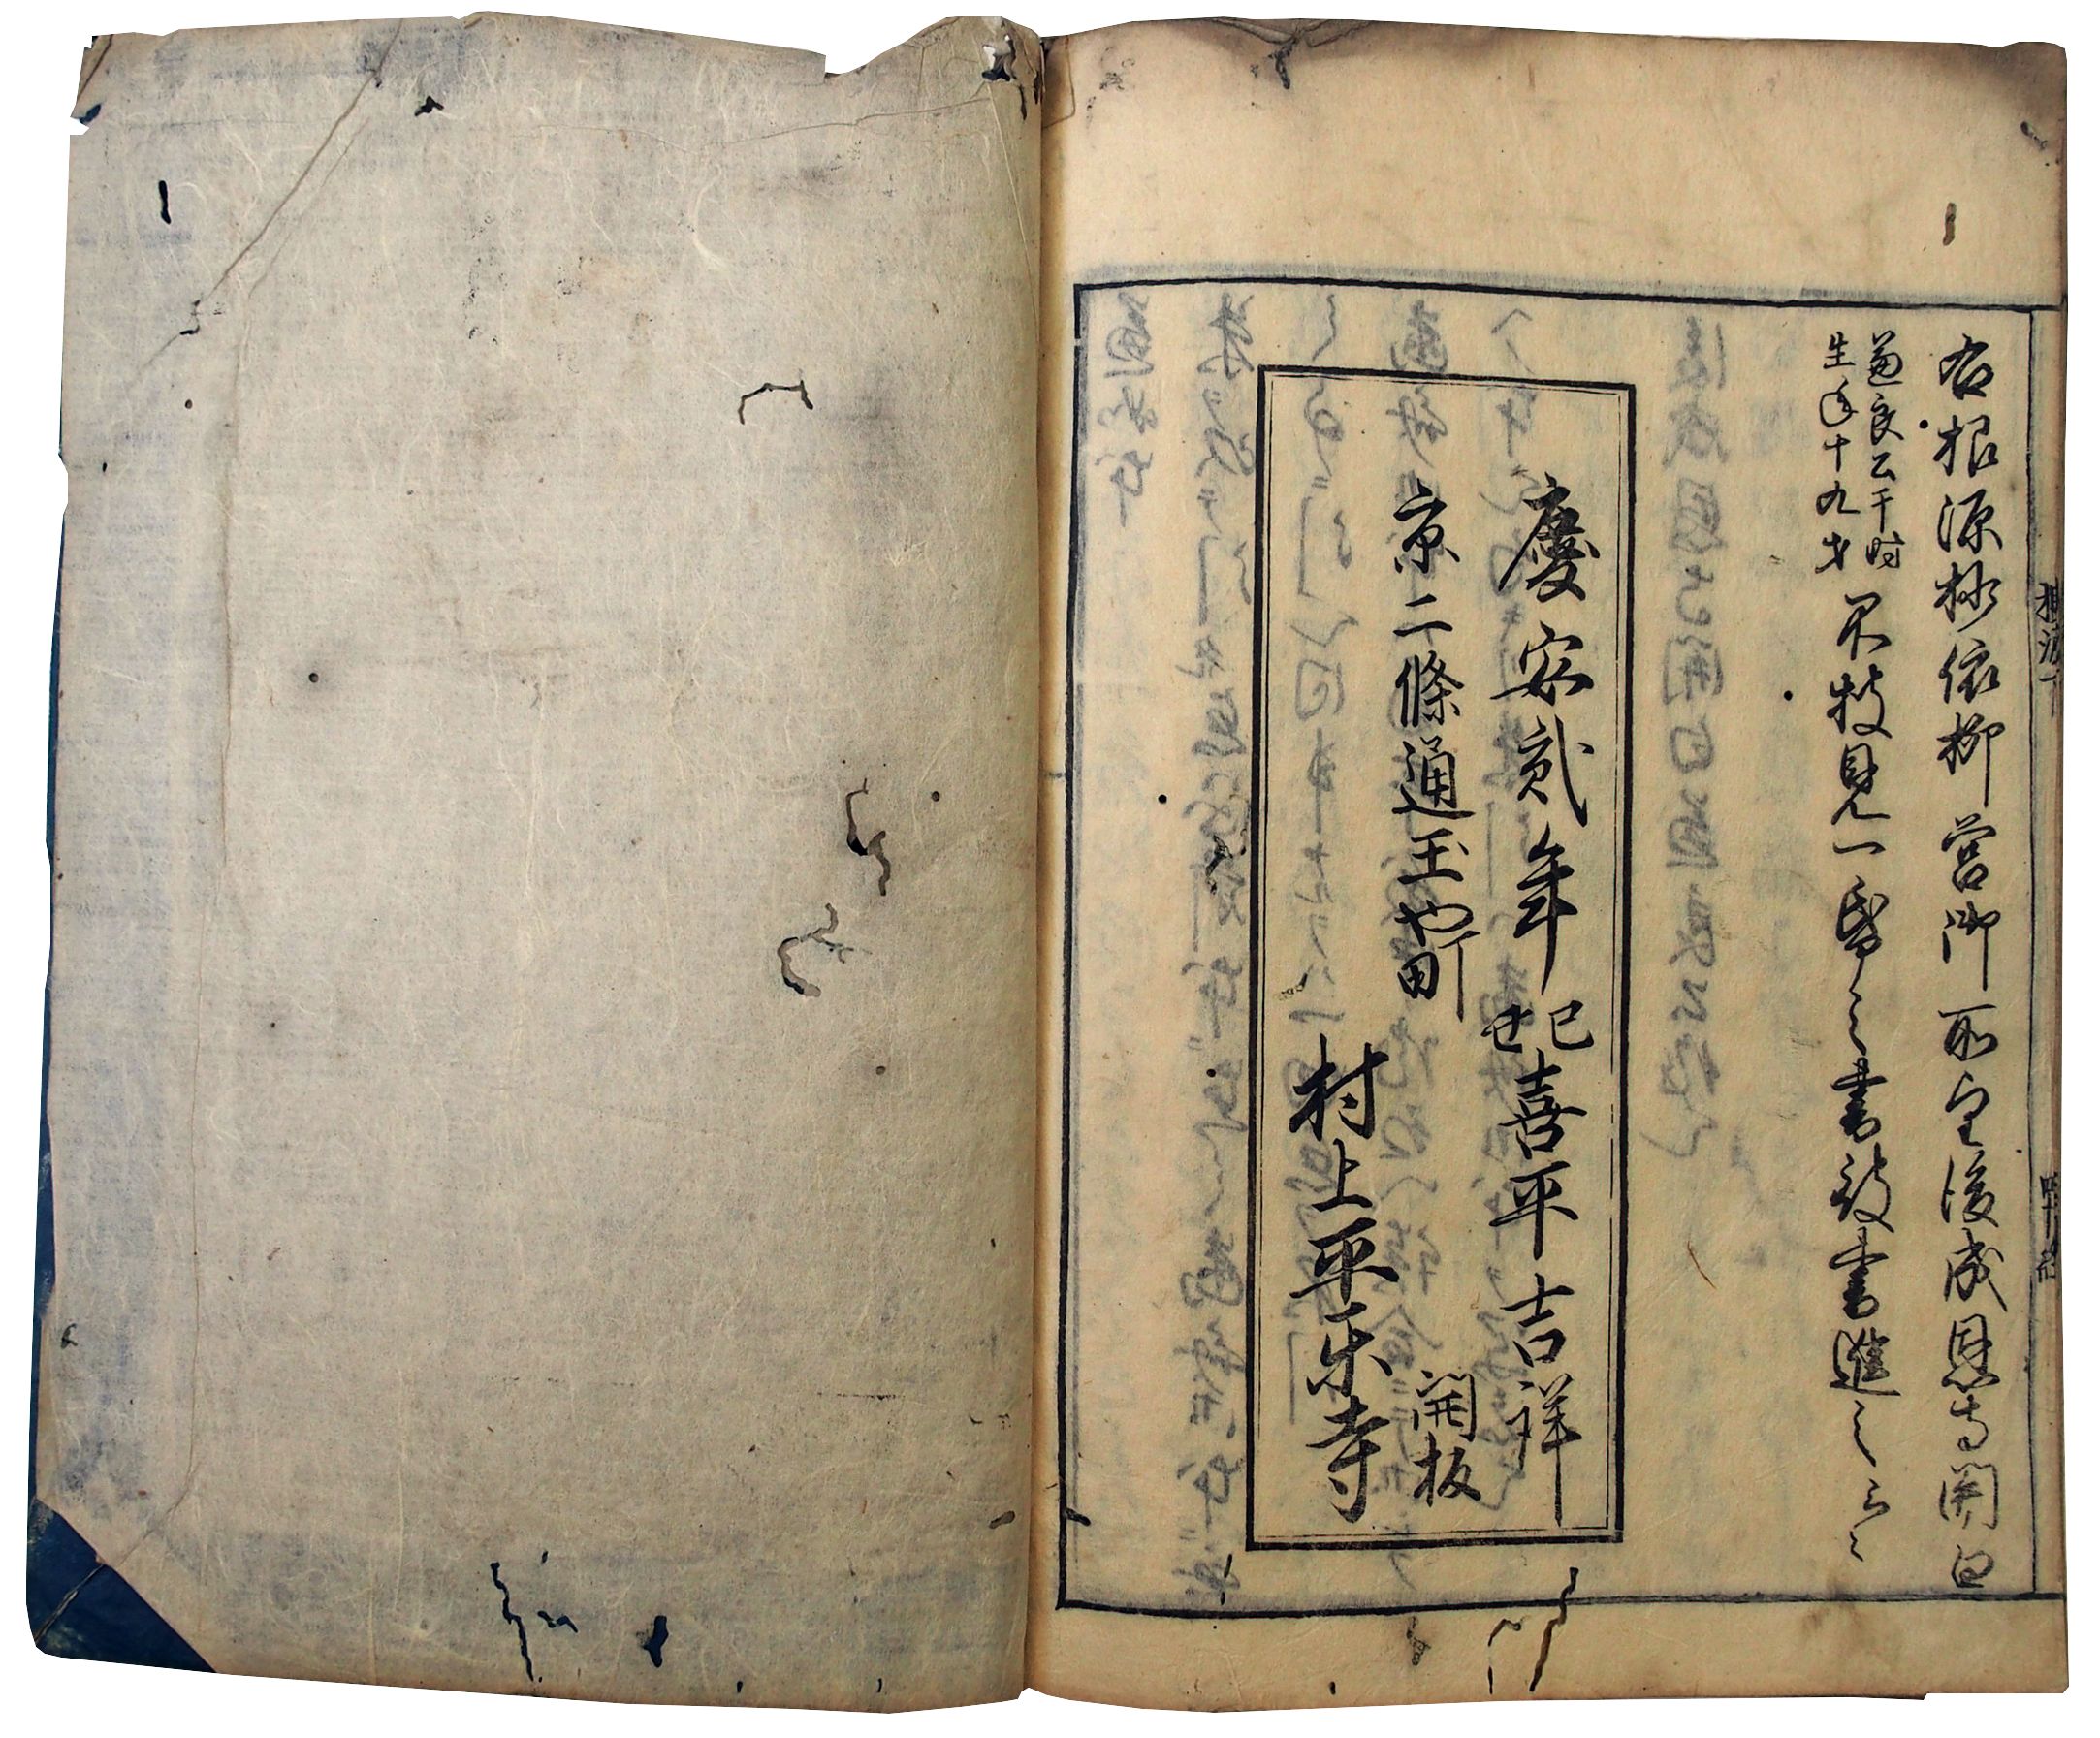 右根源抄依柳営御所望後成恩寺関白
兼良公于時
生年十九才
不披見一帋之書被書進之云々
慶安貳年己丑喜平吉祥
京二條通玉や町
村上平乐寺
開板